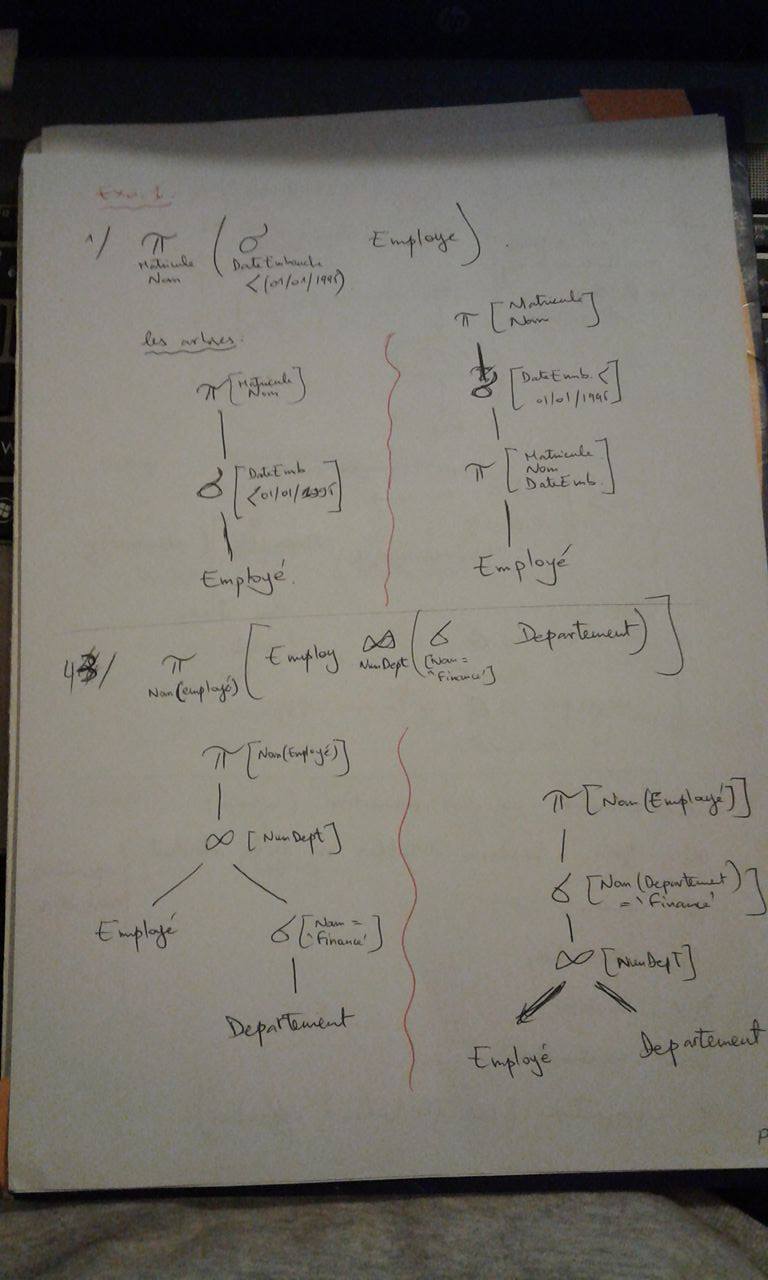 Exo. 1.
1/ π ( σ Employe) .
Matricule
Nom
DateEmbauche
<(01/01/1995)
les arbres.
π [Matricule
Nom]
σ [DateEmb
<01/01/1995]
Employé.
π [Matricule
Nom]
σ [DateEmb. <
01/01/1995]
π [Matricule
Nom
DateEmb.]
Employé
4/ π [ Employ ∞ ( σ Departement) ]
Nom(employé)
NumDept
[Nom =
'Finance']
π [Nom(Employé)]
∞ [NumDept]
Employé
σ [Nom =
'Finance']
Departement
π [Nom(Employé)]
σ [Nom(Departement)
= 'Finance']
∞ [NumDepT]
Employé
Departement
P